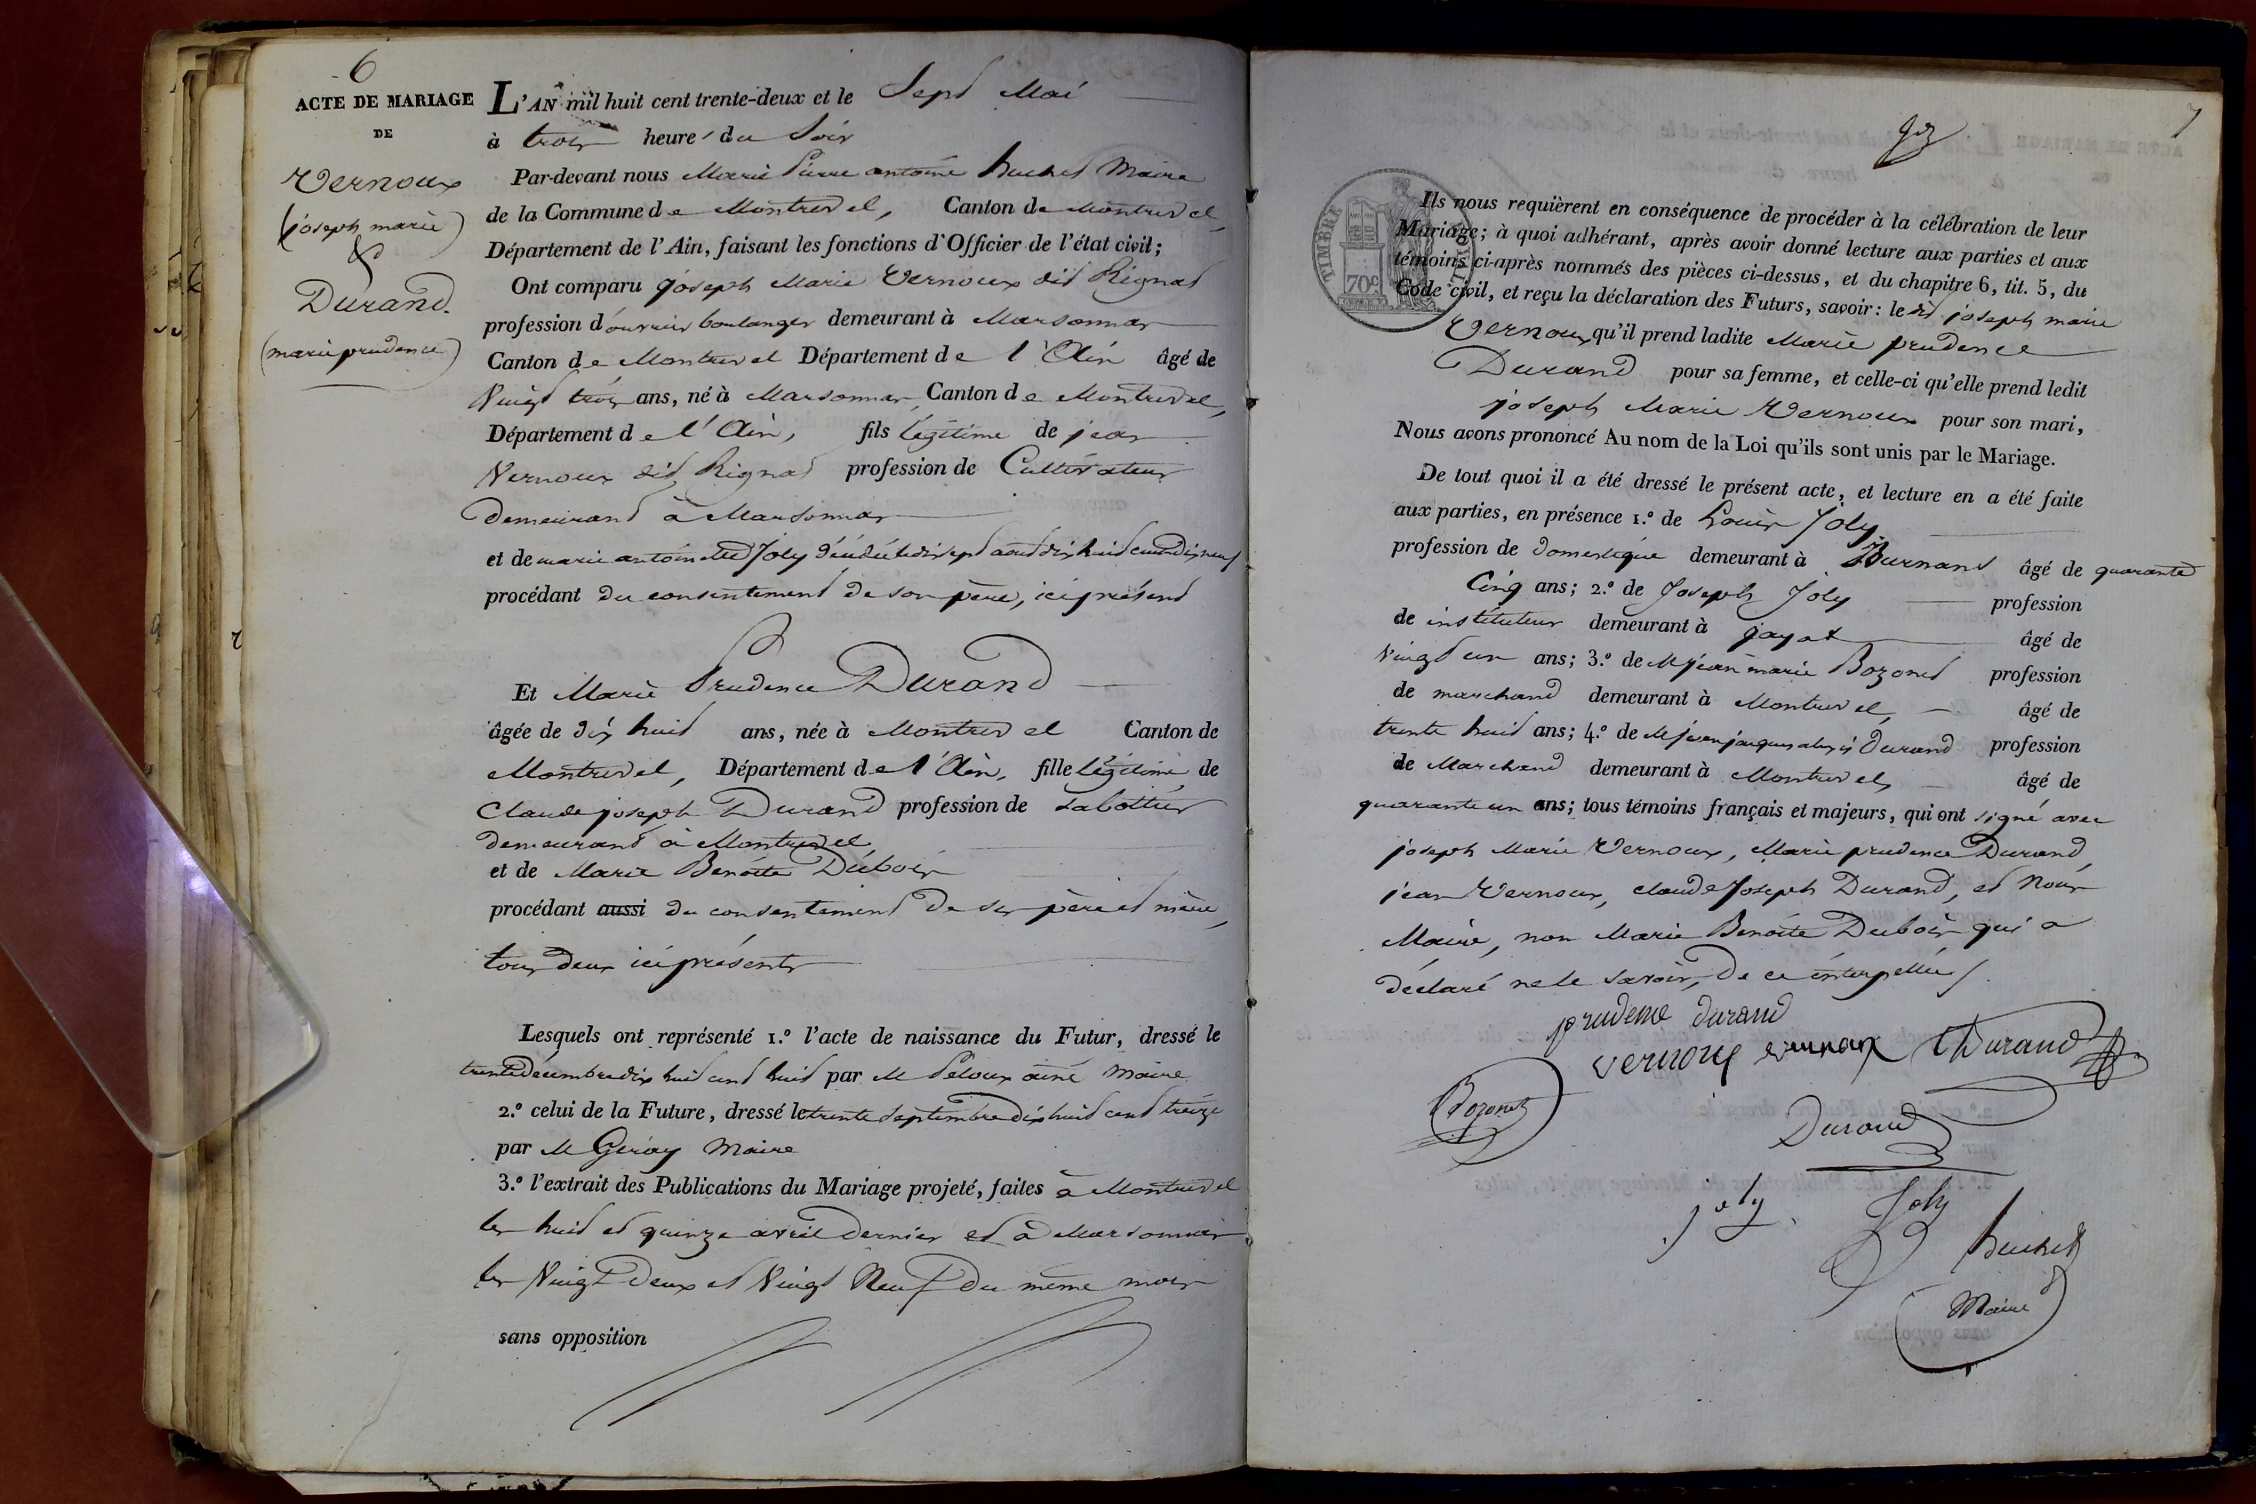 6
ACTE DE MARIAGE
DE
Vernoux
(joseph marie)
&
Durand.
(marie prudence)
L'AN mil huit cent trente-deux et le Sept Mai
à trois heures du Soir
Par-devant nous Marie Pierre antoine huchet Maire
de la Commune de Montrevel, Canton de Montrevel,
Département de l'Ain, faisant les fonctions d'Officier de l'état civil;
Ont comparu joseph Marie Vernoux dit Rignat
profession d'ouvrier boulanger demeurant à Marsonnas
Canton de Montrevel Département de l'Ain âgé de
Vingt trois ans, né à Marsonnas, Canton de Montrevel,
Département de l'Ain, fils légitime de jean
Vernoux dit Rignat profession de Cultivateur
demeurant à Marsonnas
et de marie antoinette Joly décédée le dix sept août dix huit cent dix neuf
procédant du consentement de son père, ici présent
Et Marie Prudence Durand
âgée de dix huit ans, née à Montrevel Canton de
Montrevel, Département de l'Ain, fille légitime de
Claude joseph Durand profession de sabottier
demeurant à Montrevel
et de Marie Benoite Dubois
procédant aussi du consentement de ses père et mère,
tous deux ici présents
Lesquels ont représenté 1.º l'acte de naissance du Futur, dressé le
trente décembre dix huit cent huit par M Peloux ainé Maire
2.º celui de la Future, dressé le trente septembre dix huit cent treize
par M Geray Maire
3.º l'extrait des Publications du Mariage projeté, faites à Montrevel
les huit et quinze avril dernier et à Marsonnas
les Vingt deux et Vingt Neuf du même mois
sans opposition
7
TIMBRE
70c
Ils nous requièrent en conséquence de procéder à la célébration de leur
Mariage; à quoi adhérant, après avoir donné lecture aux parties et aux
témoins ci-après nommés des pièces ci-dessus, et du chapitre 6, tit. 5, du
Code civil, et reçu la déclaration des Futurs, savoir: le dit joseph marie
Vernoux qu'il prend ladite Marie prudence
Durand pour sa femme, et celle-ci qu'elle prend ledit
joseph Marie Vernoux pour son mari,
Nous avons prononcé Au nom de la Loi qu'ils sont unis par le Mariage.
De tout quoi il a été dressé le présent acte, et lecture en a été faite
aux parties, en présence 1.º de Louis Joly
profession de domestique demeurant à Burnans âgé de quarante
Cinq ans; 2.º de Joseph Joly profession
de instituteur demeurant à jayat âgé de
Vingt un ans; 3.º de M jean marie Bozonet profession
de marchand demeurant à Montrevel, âgé de
trente huit ans; 4.º de M jean jacques alexis Durand profession
de Marchand demeurant à Montrevel, âgé de
quarante un ans; tous témoins français et majeurs, qui ont signé avec
joseph Marie Vernoux, Marie prudence Durand,
jean Vernoux, claude Joseph Durand, et Nous
Maire, non Marie Benoite Dubois qui a
déclaré ne le savoir, de ce interpellée
prudence durand
vernoux vernoux Durand
Bozonet
Durand
joly Joly
huchet
Maire